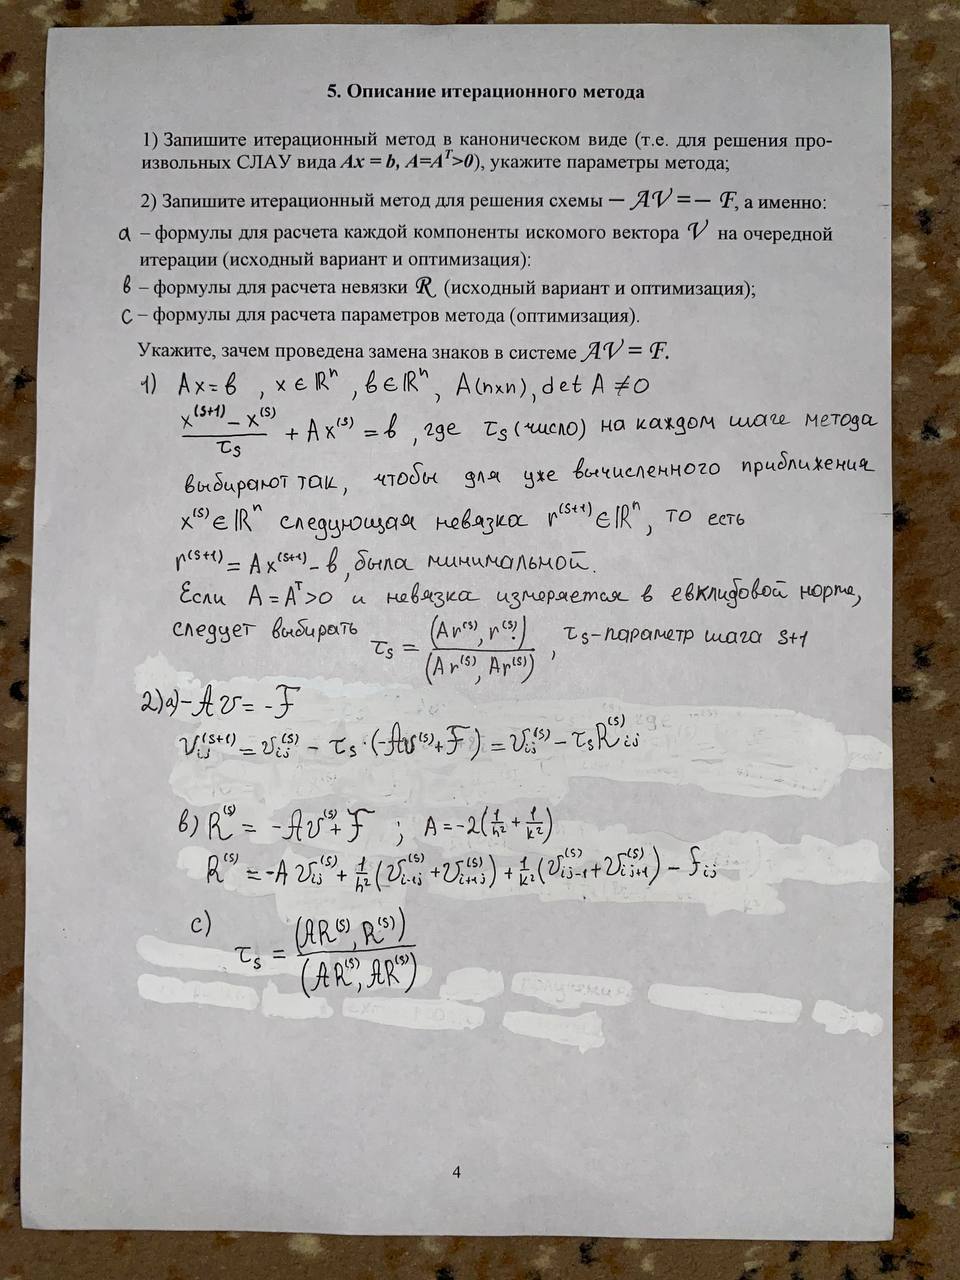 5. Описание итерационного метода
1) Запишите итерационный метод в каноническом виде (т.е. для решения про-
извольных СЛАУ вида Ax = b, A=Aᵀ>0), укажите параметры метода;
2) Запишите итерационный метод для решения схемы – AV = – F, а именно:
a – формулы для расчета каждой компоненты искомого вектора V на очередной
итерации (исходный вариант и оптимизация):
в – формулы для расчета невязки R (исходный вариант и оптимизация);
c – формулы для расчета параметров метода (оптимизация).
Укажите, зачем проведена замена знаков в системе AV = F.
1) Ax = в , x ∈ ℝⁿ , в ∈ ℝⁿ, A(n×n), det A ≠ 0
(x^(s+1) – x^(s))/τ_s + Ax^(s) = в , где τ_s (число) на каждом шаге метода
выбирают так, чтобы для уже вычисленного приближения
x^(s) ∈ ℝⁿ следующая невязка r^(s+1) ∈ ℝⁿ, то есть
r^(s+1) = Ax^(s+1) – в , была минимальной.
Если A = Aᵀ > 0 и невязка измеряется в евклидовой норме,
следует выбирать τ_s = (Ar^(s), r^(s))/(Ar^(s), Ar^(s)) , τ_s – параметр шага s+1
2) a) –Av = –F
v_ij^(s+1) = v_ij^(s) – τ_s · (–Av^(s) + F) = v_ij^(s) – τ_s R_ij^(s)
в) R^(s) = –Av^(s) + F ; A = –2(1/h² + 1/k²)
R^(s) = –A v_ij^(s) + 1/h² (v_i-1j^(s) + v_i+1j^(s)) + 1/k² (v_ij-1^(s) + v_ij+1^(s)) – f_ij
c)
τ_s = (AR^(s), R^(s))/(AR^(s), AR^(s))
получения
4